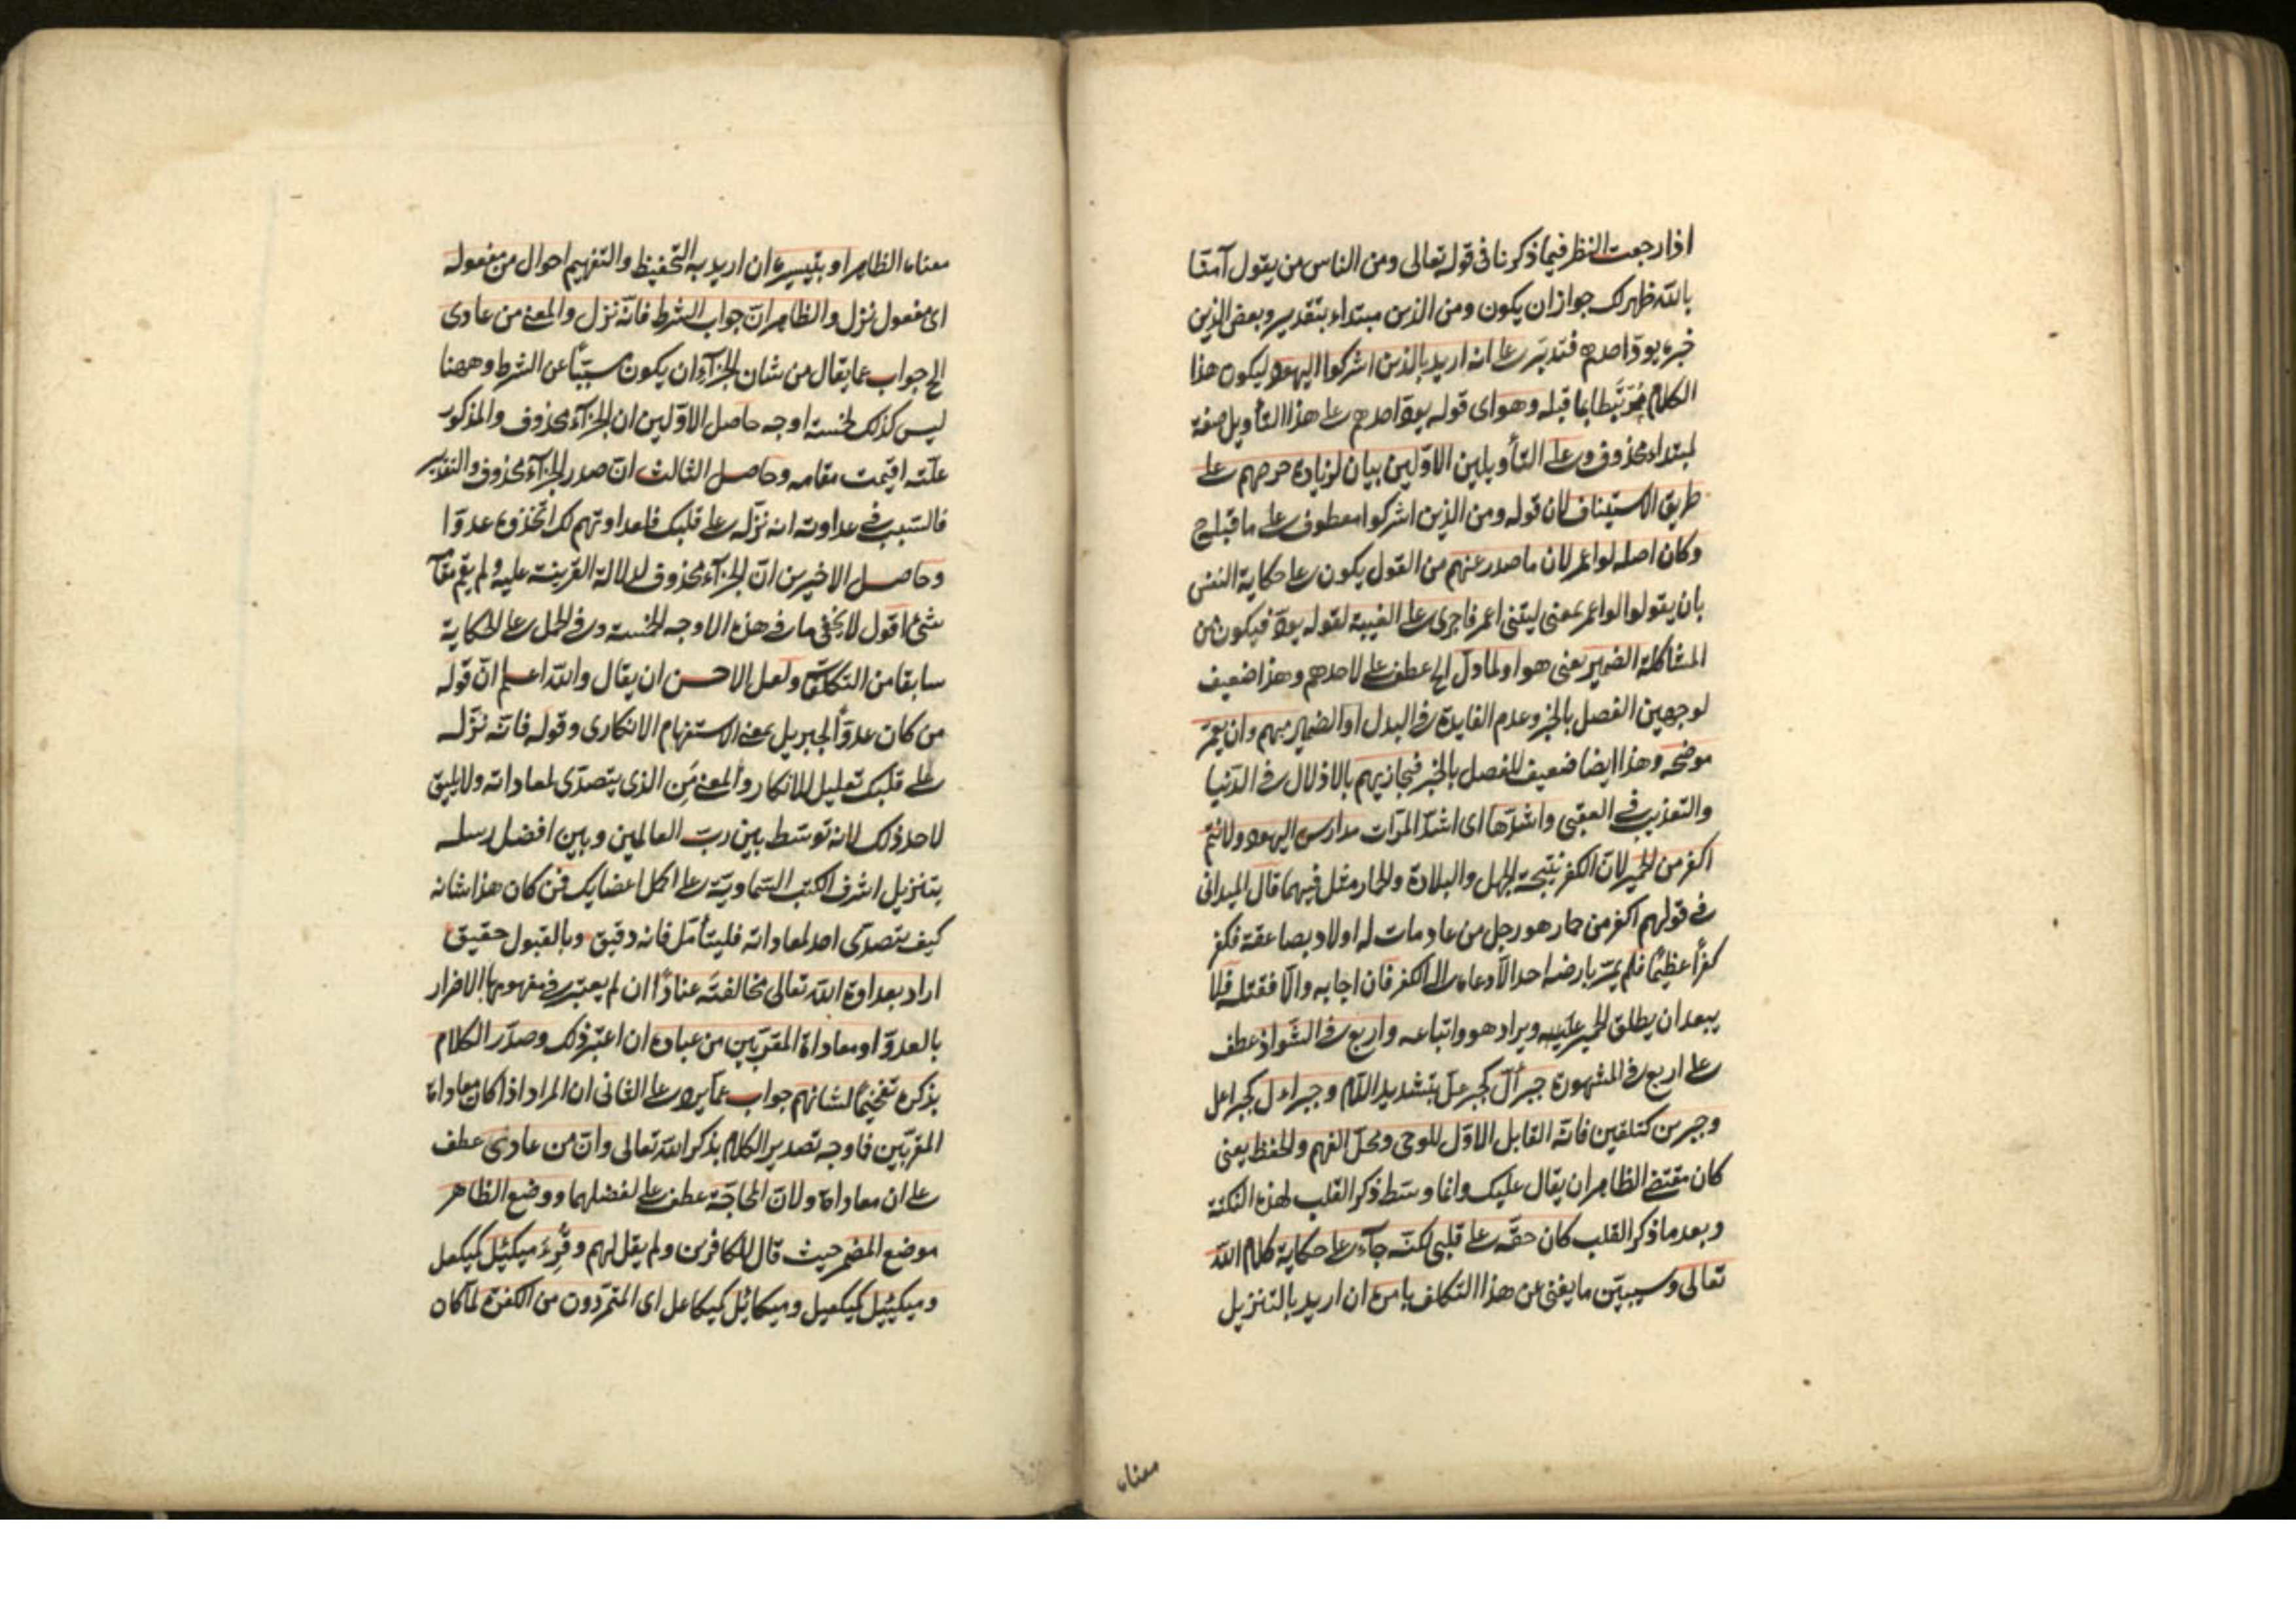 اذا رجعت النظر فيما ذكرنا فى قوله تعالى ومن الناس من يقول آمنا
بالله ظهر لك جواز ان يكون ومن الذين مبتداء بتقدير وبعض الذين
خبره يود احدهم فتدبر على انه اريد بالذين اشركوا اليهود ليكون هذا
الكلام مرتبطا بما قبله وهو اى قوله يود احدهم على هذا التأويل صفة
لمبتداء محذوف وعلى التأويلين الاولين بيان لزيادة حرصهم على
طريق الاستيناف لان قوله ومن الذين اشركوا معطوف على ما قبله ح
وكان اصله لو اعمر لان ما صدر عنهم من القول يكون على حكاية النفس
بان يقولوا لو اعمر بمعنى ليتنى اعمر فاجرى على الغيبة لقوله يود فيكون من
المشاكلة الضمير يعنى هو او لما دل الخ عطف على لاحدهم وهذا ضعيف
لوجهين الفصل بالخبر وعدم الفايدة فى البدل او الضمير مبهم وان يعمر
موضحه وهذا ايضا ضعيف للفصل بالخبر فيجازيهم بالاذلال فى الدنيا
والتعذيب فى العقبى واشدها اى اشد المرات مدارس اليهود ولانتم
اكفر من الحمير لان الكفر نتيجة الجهل والبلادة والحمار مثل فيهما قال الميدانى
فى قولهم اكفر من حمار هو رجل من عاد مات له اولاد بصاعقة فكفر
كفرا عظيما فلم يمر بارضه احد الا دعاه الى الكفر فان اجابه والا فقتله فلا
يبعد ان يطلق الحمير عليه ويراد هو واتباعه واربع فى الشواذ عطف
على اربع فى المشهورة جبرأل كجبرعل بتشديد اللام وجبراءل كجبراعل
وجبرين كتلقين فانه القابل الاول للوحى ومحل الفهم والحفظ يعنى
كان مقتضى الظاهر ان يقال عليك وانما وسط ذكر القلب لهذه النكتة
وبعد ما ذكر القلب كان حقه على قلبى لكنه جآء على حكاية كلام الله
تعالى وسيبين ما يغنى عن هذا التكلف بامره ان اريد بالتنزيل
معناه
معناه الظاهر او بتيسيره ان اريد به التحفيظ والتفهيم احوال من مفعوله
اى مفعول نزل والظاهر ان جواب الشرط فانه نزل والمعنى من عادى
الخ جواب عما يقال من شان الجزآء ان يكون مسببا عن الشرط وههنا
ليس كذلك لخمسة اوجه حاصل الاولين ان الجزآء محذوف والمذكور
علته اقيمت مقامه وحاصل الثالث ان صدر الجزآء محذوف والتقدير
فالسبب فى عداوته انه نزله على قلبك فلعداوتهم لك اتخذوه عدوا
وحاصل الاخيرين ان الجزآء محذوف لدلالة القرينة عليه ولم يقم مقامه
شئ اقول لا يخفى ما فى هذه الاوجه الخمسة وفى الحمل على الحكاية
سابقا من التكلفات ولعل الاحسن ان يقال والله اعلم ان قوله
من كان عدوا لجبريل بمعنى الاستفهام الانكارى وقوله فانه نزله
على قلبك تعليل للانكار والمعنى من الذى يتصدى لمعاداته ولا يليق
لاحد ذلك لانه توسط بين رب العالمين وبين افضل رسله
بتنزيل اشرف الكتب السماوية على اكمل اعضايك فمن كان هذا شانه
كيف يتصدى احد لمعاداته فليتأمل فانه دقيق وبالقبول حقيق
اراد بعداوة الله تعالى مخالفته عنادا ان لم يعتبر فى مفهومها الاضرار
بالعدو او معاداة المقربين من عباده ان اعتبر ذلك وصدر الكلام
بذكره تفخيما لشانهم جواب عما يرد على الثانى ان المراد اذا كان معاداة
المقربين فما وجه تصدير الكلام بذكر الله تعالى وان من عادى عطف
على ان معاداة ولان المحاجة عطف على لفضلهما ووضع الظاهر
موضع المضمر حيث قال للكافرين ولم يقل لهم وقرئ ميكئل كميكعل
وميكئيل كميكعيل وميكائل كميكاعل اى المتمردون من الكفرة لما كان